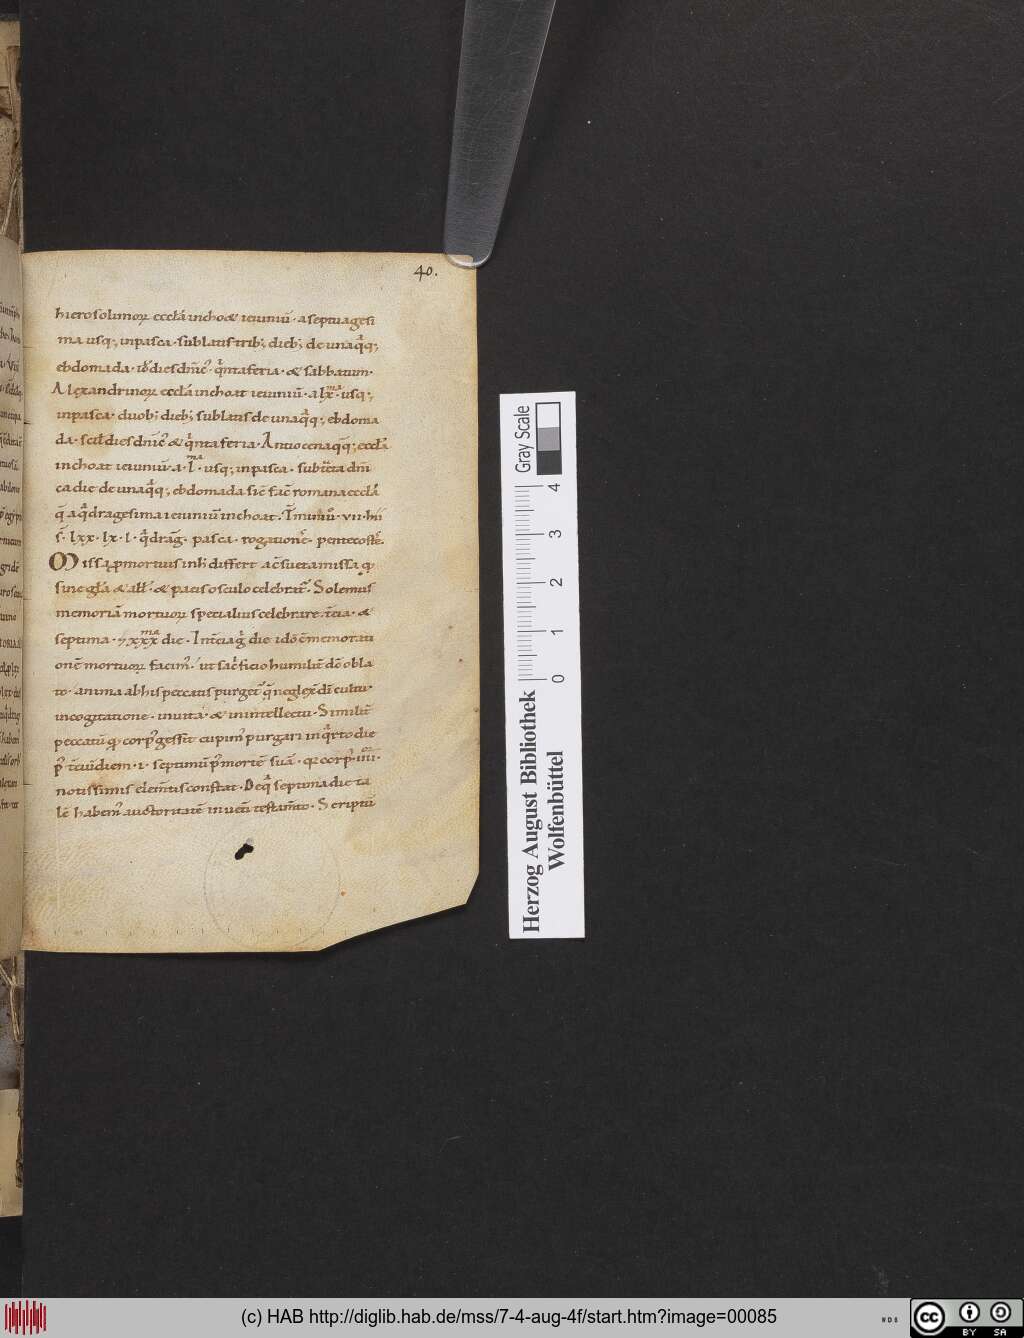 40.
hierosolimoꝝ eccła inchoat ieiuniū · a septuagesi
ma usq; in pasca · sublatis trib; dieb; de unaq̄q;
ebdomada · dies dn̄ic̄ q̄nta feria · & sabbatum ·
Alexandrinoꝝ eccła inchoat ieiuniū · a lx̄ᵐᵃ · usq;
in pasca · duob; dieb; sublatis de unaq̄q; ebdoma
da · scił dies dn̄ic̄ & q̄nta feria · Antiocenaq̄; eccła
inchoat ieiuniū · a · l̄ᵐᵃ · usq; in pasca · dn̄i
ca die de unaq̄q; ebdomada sic̄ fac̄ romana eccła
q̄ a q̄dragesima ieiuniū inchoat · vii ·
lxx · lx · l · q̄drag̅ · pasca · rogation̄ · pentecoste ·
Missa p̱ mortuis differt a c̄sueta missa q̵
sine gła & ałł · & pacis osculo celebrat̄ · Solemus
memoriā mortuoꝝ specialius celebrare · &
septima · ⁊ xxxᵐᵃ die · die c̄memorati
onē mortuoꝝ facim̄ · ut sac̄ficio humilit̄ dō obla
to · anima ab his peccatis purget̄ q̄ neglex̄ dī cultu ·
in cogitatione · in uita · & in intellectu · Similit̄
peccatū q̵ corp̄ gessit cupim̄ purgari in q̄rto die
septimū p̄ mortē suā · corp̄ · iiii ·
notissimis elem̄tis constat · De septima die ta
lē habem̄ auctoritatē in ueti testam̄to · Scriptū
Gray Scale
0 1 2 3 4
Herzog August Bibliothek
Wolfenbüttel
(c) HAB http://diglib.hab.de/mss/7-4-aug-4f/start.htm?image=00085
cc BY SA